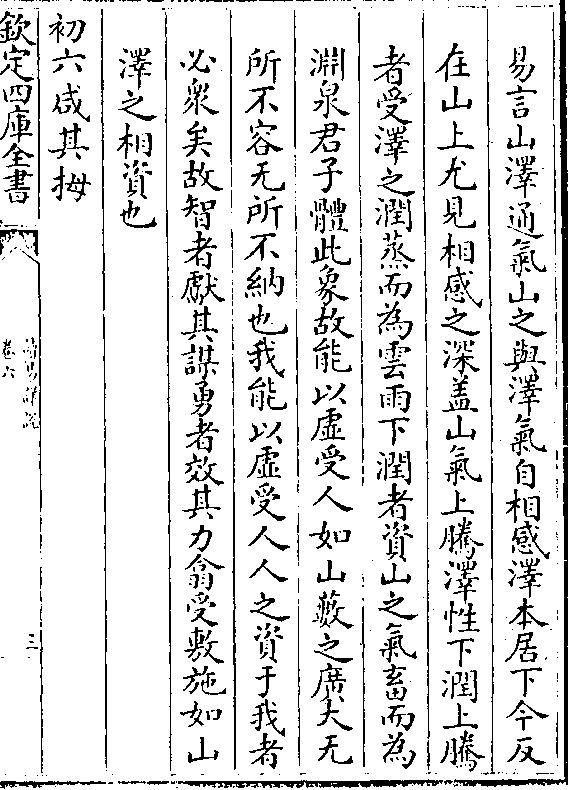 易言山澤通氣山之與澤氣自相感澤本居下今反
在山上尤見相感之深盖山氣上騰澤性下潤上騰
者受澤之潤蒸而為雲雨下潤者資山之氣畜而為
淵泉君子體此象故能以虛受人如山藪之廣大无
所不容无所不納也我能以虛受人人之資于我者
必衆矣故智者獻其謀勇者效其力翕受敷施如山
澤之相資也
初六咸其拇
欽定四庫全書
卷六
讀易詳説
三